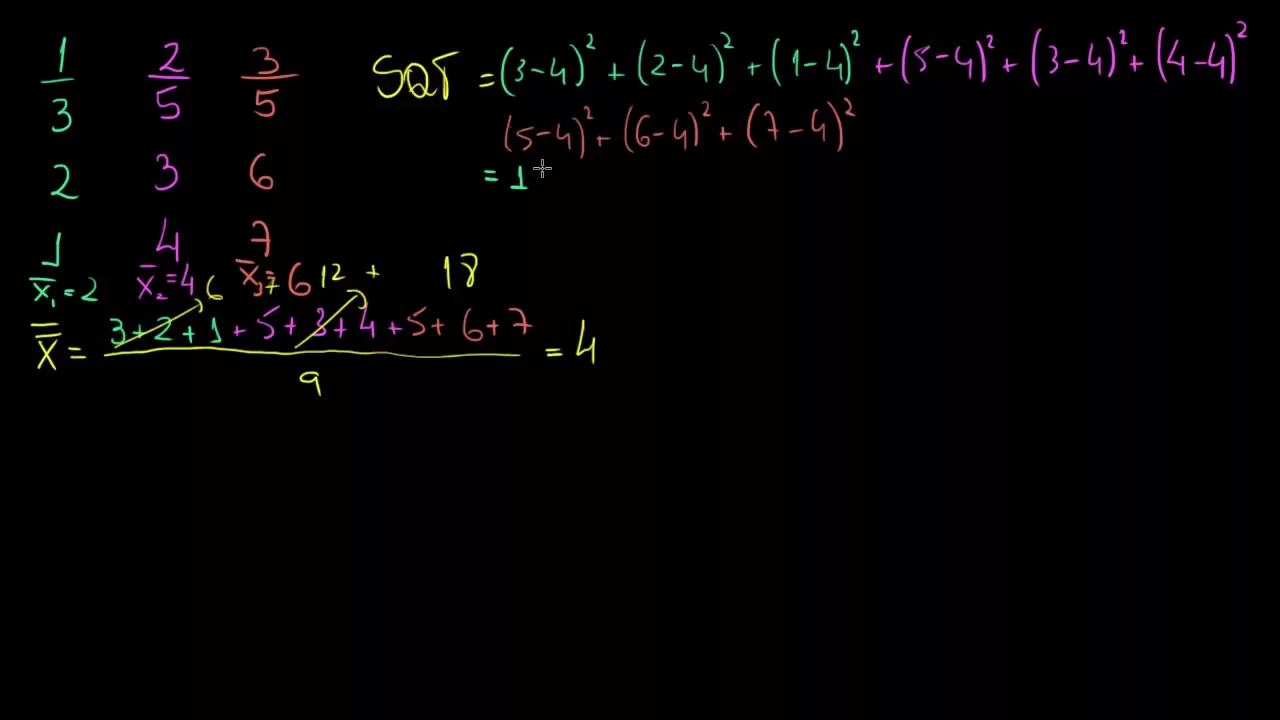 1 2 3
3 5 5
2 3 6
1 4 7
X̄₁ = 2 X̄₂ = 4 X̄₃ = 6
SQT = (3-4)² + (2-4)² + (1-4)² + (5-4)² + (3-4)² + (4-4)²
(5-4)² + (6-4)² + (7-4)²
= 1
6 12 + 18
X̿ = 3+2+1+5+3+4+5+6+7 = 4
9